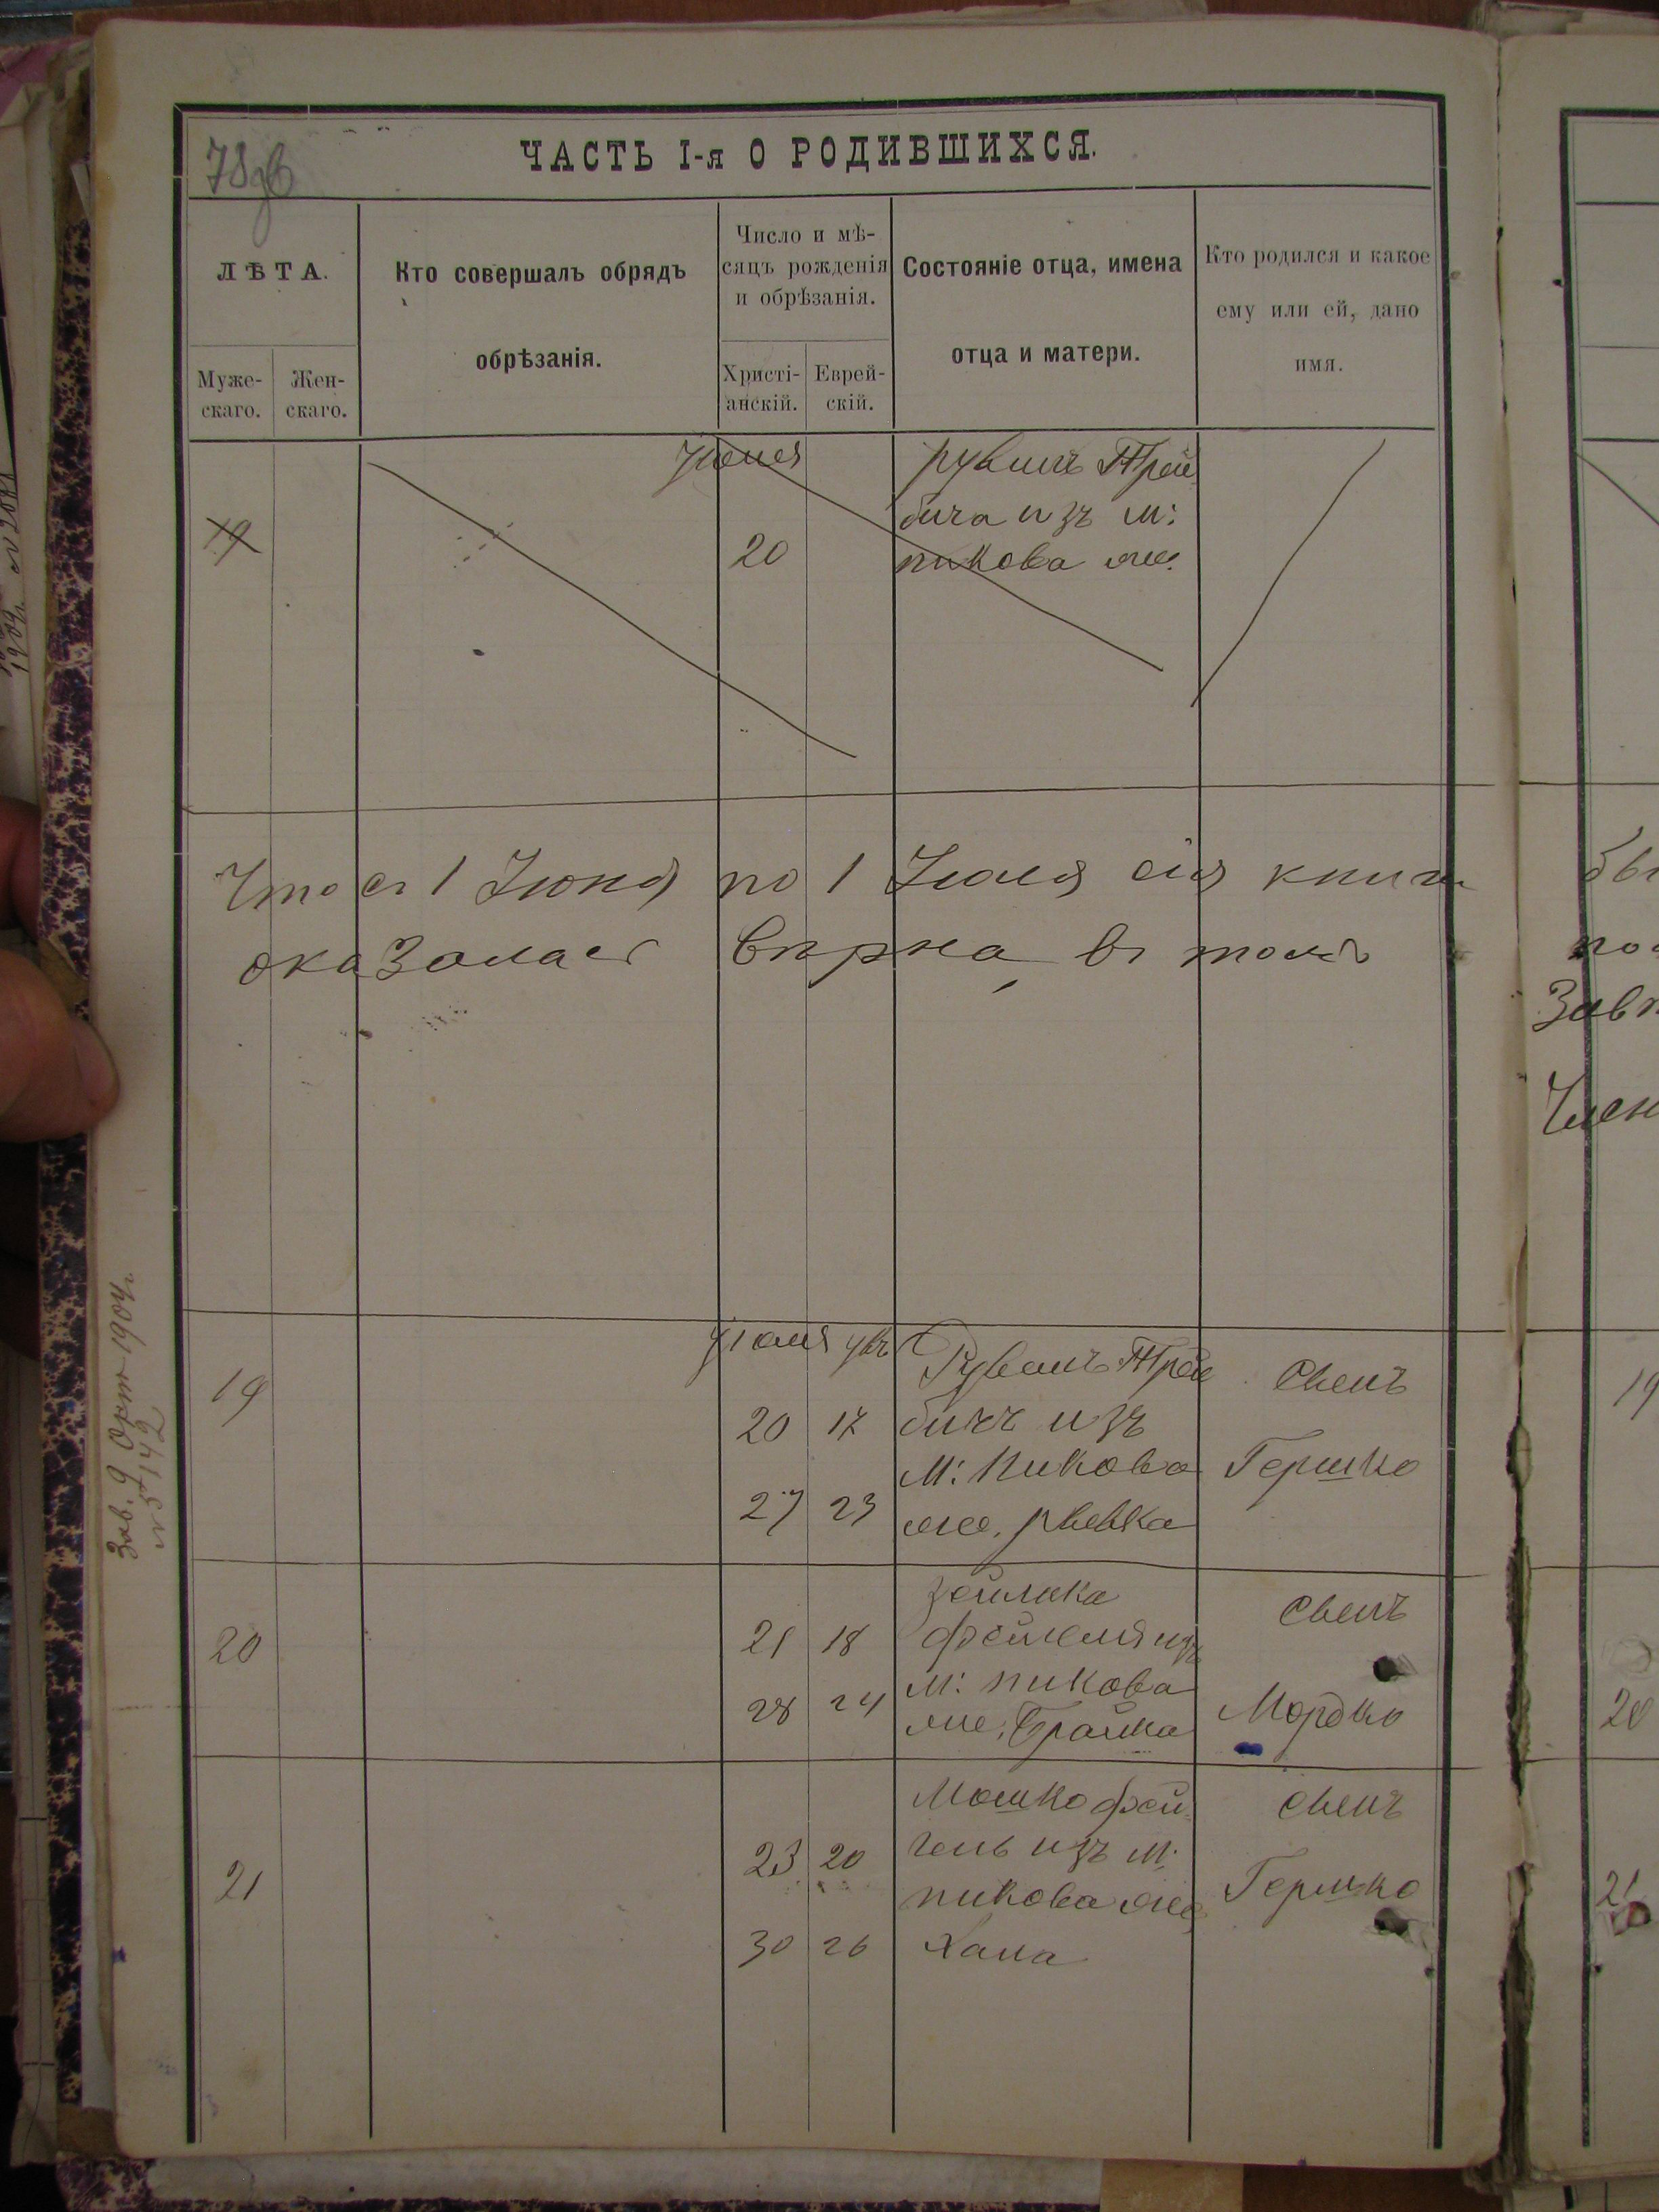 78об
ЧАСТЬ I-я О РОДИВШИХСЯ.
ЛѢТА.
Муже-
скаго.
Жен-
скаго.
Кто совершалъ обрядъ
обрѣзанія.
Число и мѣ-
сяцъ рожденія
и обрѣзанія.
Христі-
анскій.
Еврей-
скій.
Состояніе отца, имена
отца и матери.
Кто родился и какое
ему или ей, дано
имя.
19
20
рувинъ Трей
бича изъ м:
пикова же.
Что съ 1 Июня по 1 Июля сія книга
оказалась вѣрна, въ томъ
19
июля
20 17
27 23
Рувинъ Трей
бичъ изъ
м: Пикова
же. рывка
Сынъ
Гершко
20
21 18
28 24
зейлика
фейгеля изъ
м: пикова
же. Брайна
Сынъ
Мордко
21
23 20
30 26
Мошко фей
гель изъ м:
пикова же
Хана
Сынъ
Гершко
Зав. 9 Окт 1904г.
19
20
21